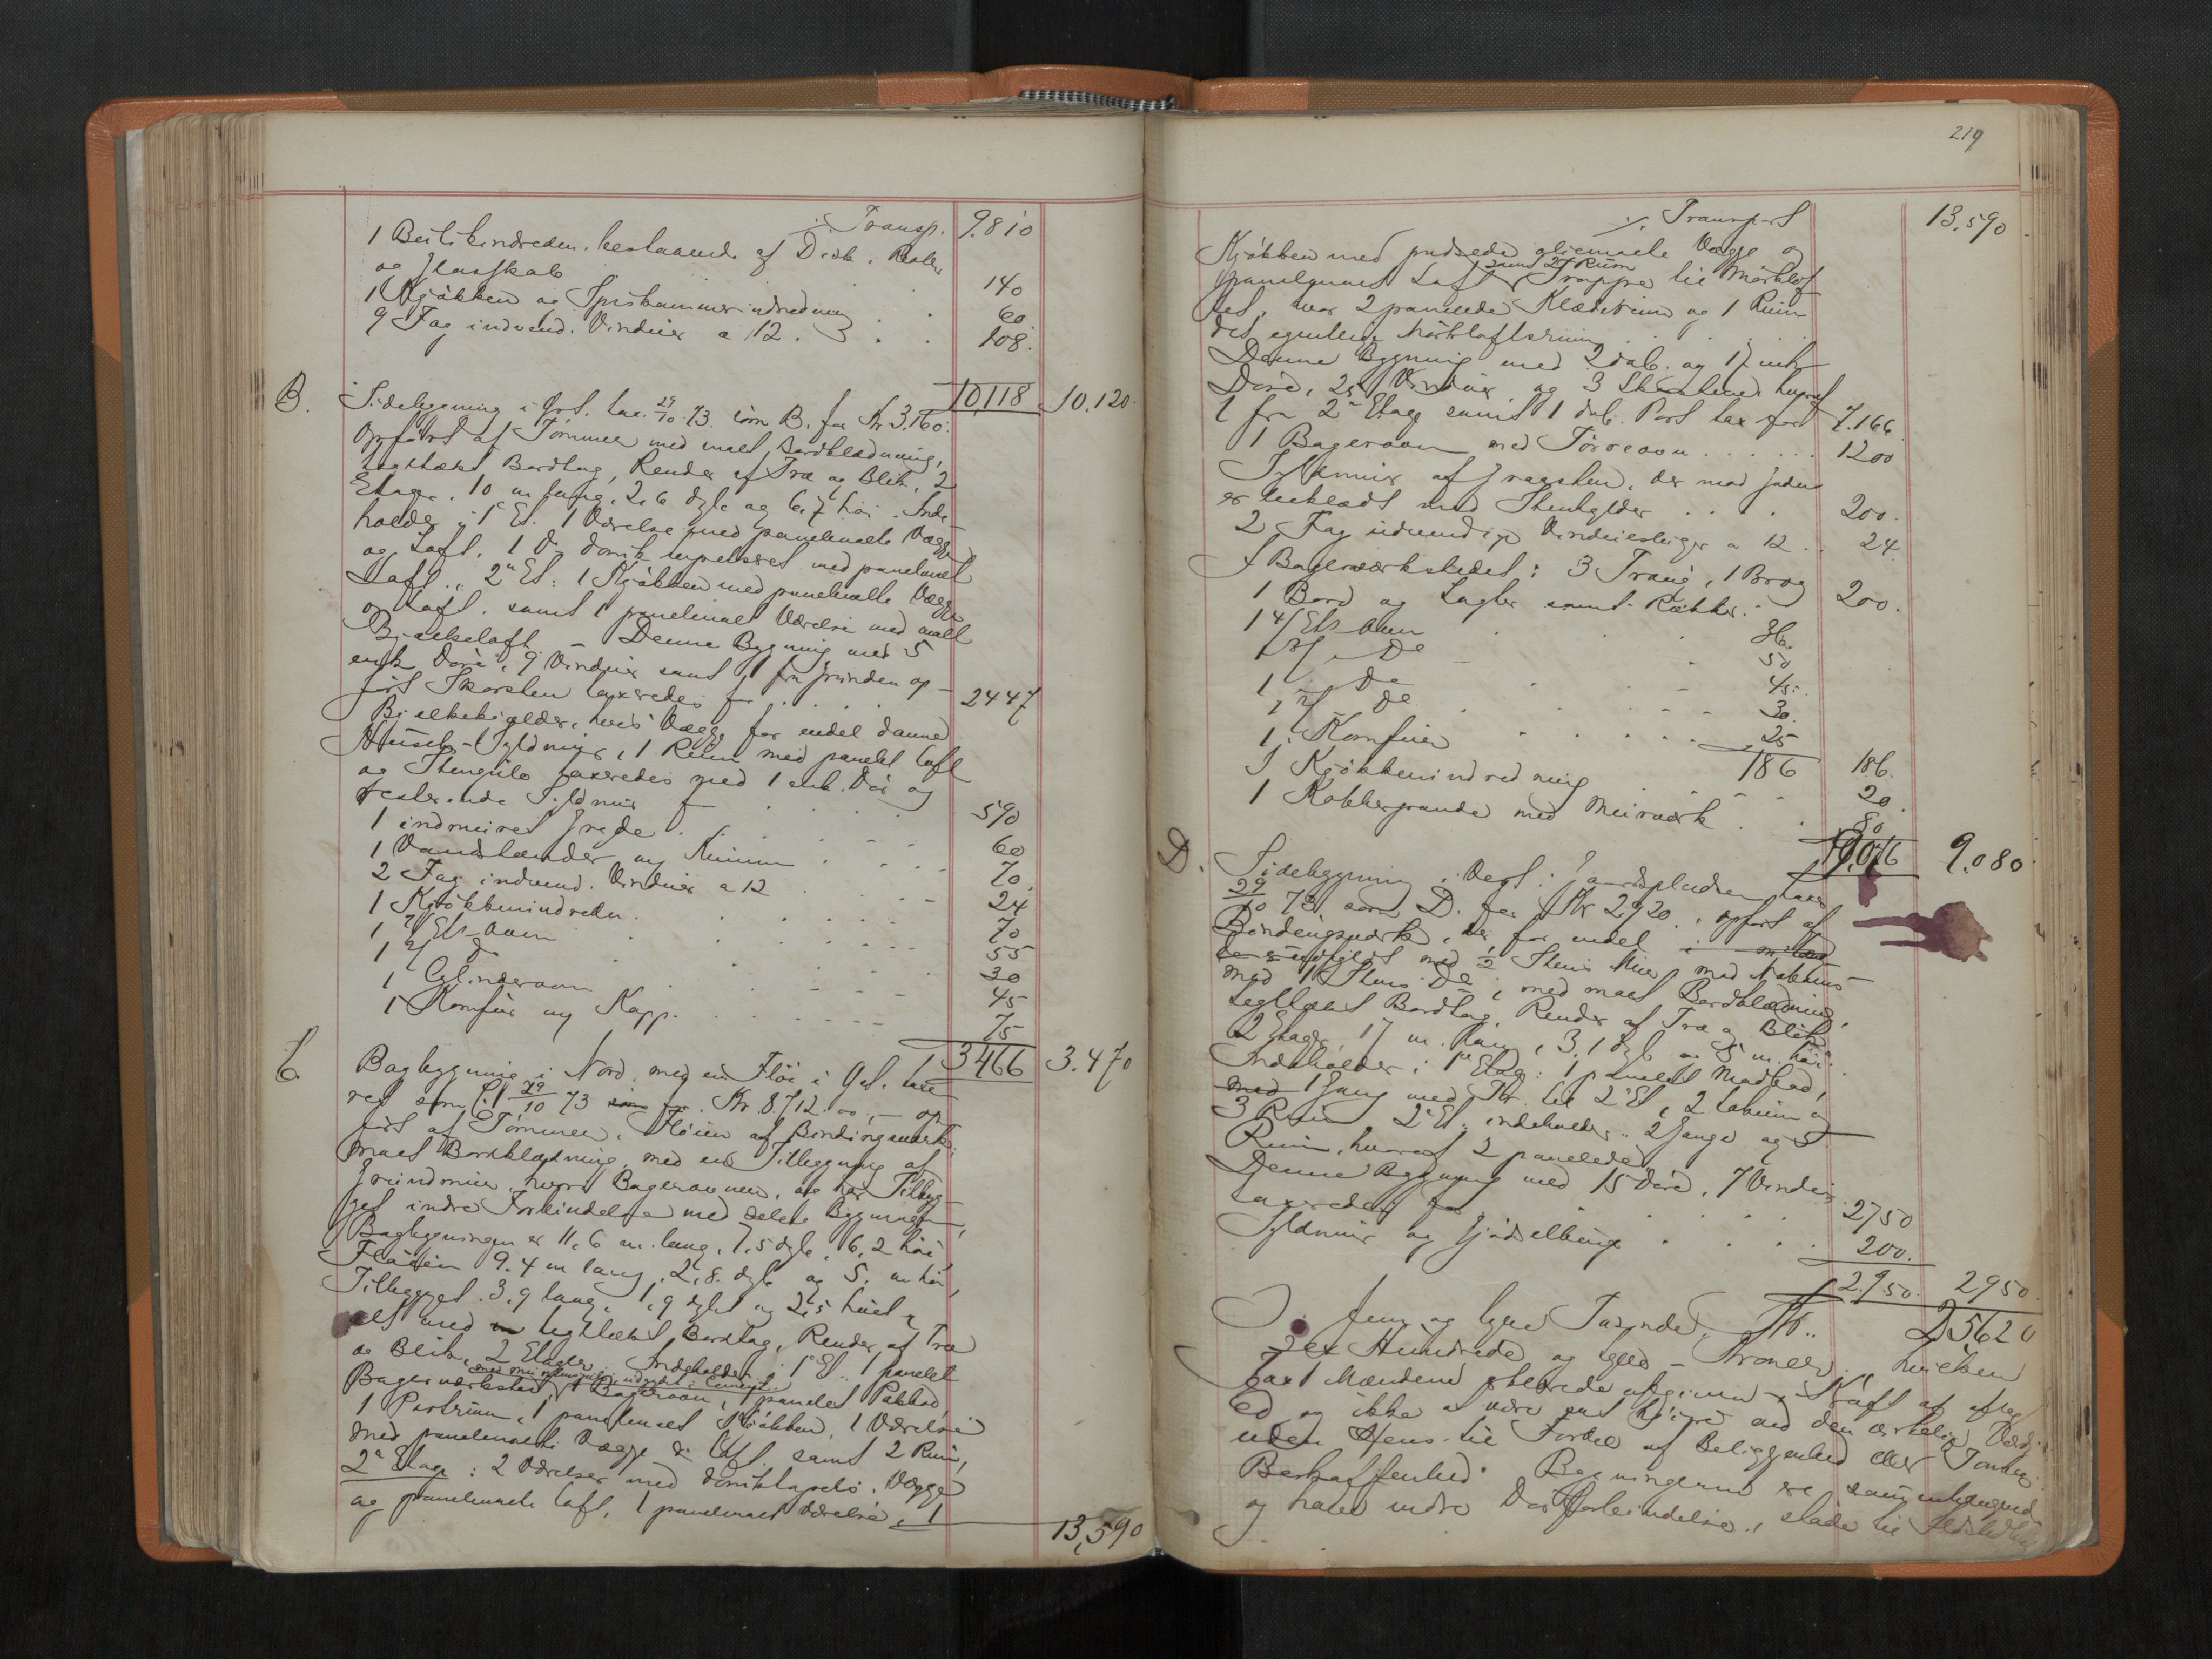 ./. Transp. 9.810
1 Butikindreden. bestaaende af Disk, Reoler
og Glasskab 140
1 Kjøkken og Spiskammerindredning . . 60
9 Fag indvend. Vinduer a 12 . . . 108.
10,118 10.120.
B. Sidebygning i Øst. tax. 29/10 73. som B. for Kr 3.160.
Opført af Tømmer med malet Bordklædning,
tegltækt Bordtag, Render af Træ og Blik, 2
Etager. 10 m lang, 2,6 dyb og 6,7 høi. Inde-
holder i 1e Et. 1 Værelse med panelmalte Vægge
og Loft, 1 Do domk. tapetseret med panelmalt
Loft. 2n Et: 1 Kjøkken med panelmalte Vægge
og Loft. samt 1 panelmalt Værelse med malt
Bjælkeloft. – Denne Bygning med 5
enk. Døre, 9 Vinduer samt 1 fra Grunden op-
ført Skorsten taxeredes for . . . . 2447
Bjelkekjelder, hvis Vægge for endel danne
Husets Syldmur, 1 Rum med panelt Loft
og Stengulv taxeredes med 1 enk. Dør og
resterende Syldmur for . . . 590
1 indmuret Gryde . . . . . 60
1 Vandstænder og Kumme . . . 70.
2 Fag indvend. Vinduer a 12 . . . 24
1 Kjøkkenindreden. . . . . 70
1 3/ Ets Ovn . . . . . 55
1 2/ D . . . . . 30
1 Cylinderovn . . . . 45
1 Komfur og Kapp. . . . . 75
3466 3.470
C. Bagbygning i Nord, med en Fløi i Øst. taxe-
ret som C. 29/10 73 Kr. 8.712.00, – op-
ført af Tømmer, Fløien af Bindingsværk,
malet Bordklædning, med en Tilbygning af
Grundmur, hvori Bagerovnen, og har Tilbyg-
get indre Forbindelse med selve Bygningen,
Bagbygningen er 11,6 m. lang, 7,5 dyb, 6,2 høi,
Fløien 9.4 m lang, 2,8. dyb og 5. m høi,
Tilbygget 3,9 lang, 1,9 dybt og 2,5 høiet,
alt med tegltækt Bordtag, Render af Træ
og Blik, 2 Etager. Indeholder i 1e Et.. 1 panelt
Bagerværksted, 1 Bagerovn, 1 panelet Pakbod,
1 Portrum, 1 panelmalt Kjøkken, 1 Værelse
med panelmalte Vægge og Loft. samt 2 Rum,
2n Etage: 2 Værelser med domktapets. Vægge
og panelmalte Loft, 1 panelmalt Værelse, 1
13,590
219
./. Transport 13.590
Kjøkken med pudsede oliemalte Vægge og
panelmalt Loft samt 2 Rum Trappe til Mørklof
tet, hvor 2 panelede Klædesrum og 1 Rum
det egentlige Mørkloftsrum . . . .
Denne Bygning med 2 dob. og 17 enk.
Døre, 25 Vinduer og 3 Skorstene hvoraf
1 fra 2n Etage samt 1 dob. Port tax for 7.166
1 Bagerovn med Tørreovn . . . . . . 1200
Syldmur af Graasten, der mod Gaden
er beklædt med Stenheller . . . . 200.
2 Fag udvendige Vinduer a 12 . . 24.
I Bagerværkstedet: 3 Traug, 1 Brog
1 Bord og Lagler samt Rækker. 200.
1 4/ Ets Ovn . . . 36.
1 3/ De – . 50
1 De . . – 45.
1 2/ De . . . – – 30.
1 Komfur . . . . . . 25
186 186.
1 Kjøkkenindredning . . – – 20.
1 Kobbergrande med Murværk . . 80
9.076 9.080.
D. Sidebygning i Vest i Gaardspladsen, taxer.
29/10 73. som D. for Kr 2.920., opført af
Bindingsværk, der for endel
udfyldt med 1/2 Stens Mur, mod Naboens
med 1 Stens De, med malet Bordklædning,
tegltækt Bordtag, Render af Træ og Blik,
2 Etager, 17 m. lang, 3,1 dyb og 5 m. høi.
Indeholder i 1e Etag: 1 panelet Madbod,
med 1 Gang med Tr. til 2n Et, 2 Lokum og
3 Rum 2n Et. indeholder 2 Gange og 5
Rum, hvoraf 2 panelede.
Denne Bygning med 15 Døre, 7 Vinduer
taxeredes for . . . . . 2750
Syldmur og Gjødselbinge . . . . 200.
2.950. 2950
25620
Fem og tyve Tusinde, Kr..
Sex Hundrede og tyve – Kroner, hvilken
Taxt Mændene erklærede afgiven i Kraft af aflagt
Ed og ikke at være sat høiere end den virkelige Værdi
uden Hensyn til Fordel af Beliggenhed eller Tomtens
Beskaffenhed. Bygningerne ere sammenhængende
og have indre Dørforbindelse, støde til